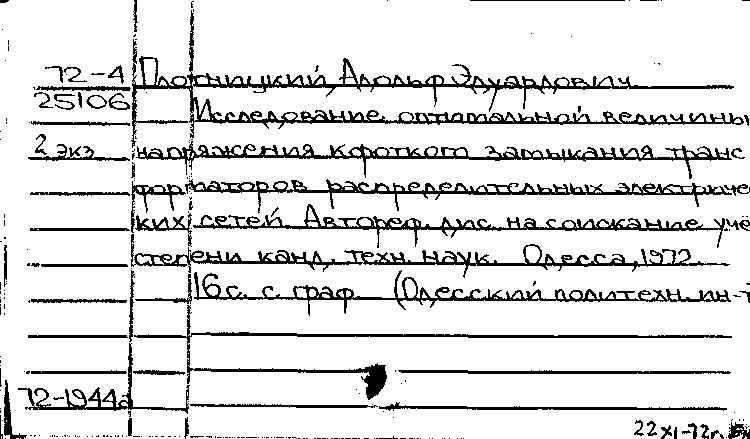 72-4 Плотницкий, Адольф Эдуардович
25106 Исследование оптимальной величины
2 экз напряжения короткого замыкания транс
форматоров распределительных электричес
ких сетей. Автореф. дис. на соискание учё
степени канд. техн. наук. Одесса, 1972.
16 с. с граф. (Одесский политехн. ин-т
72-1944а
22 XI-72г.